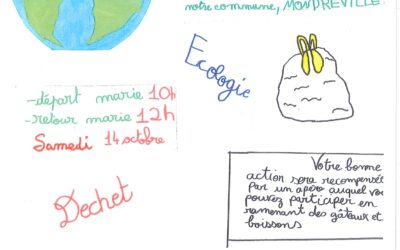 notre commune, MONDREVILLE
Ecologie
-départ marie 10h
-retour marie 12h
Samedi 14 octobre
Dechet
Votre bonne
action sera recompensée
Par un apéro auquel vous
pouvez participer en
ramenant des gâteaux et
boissons